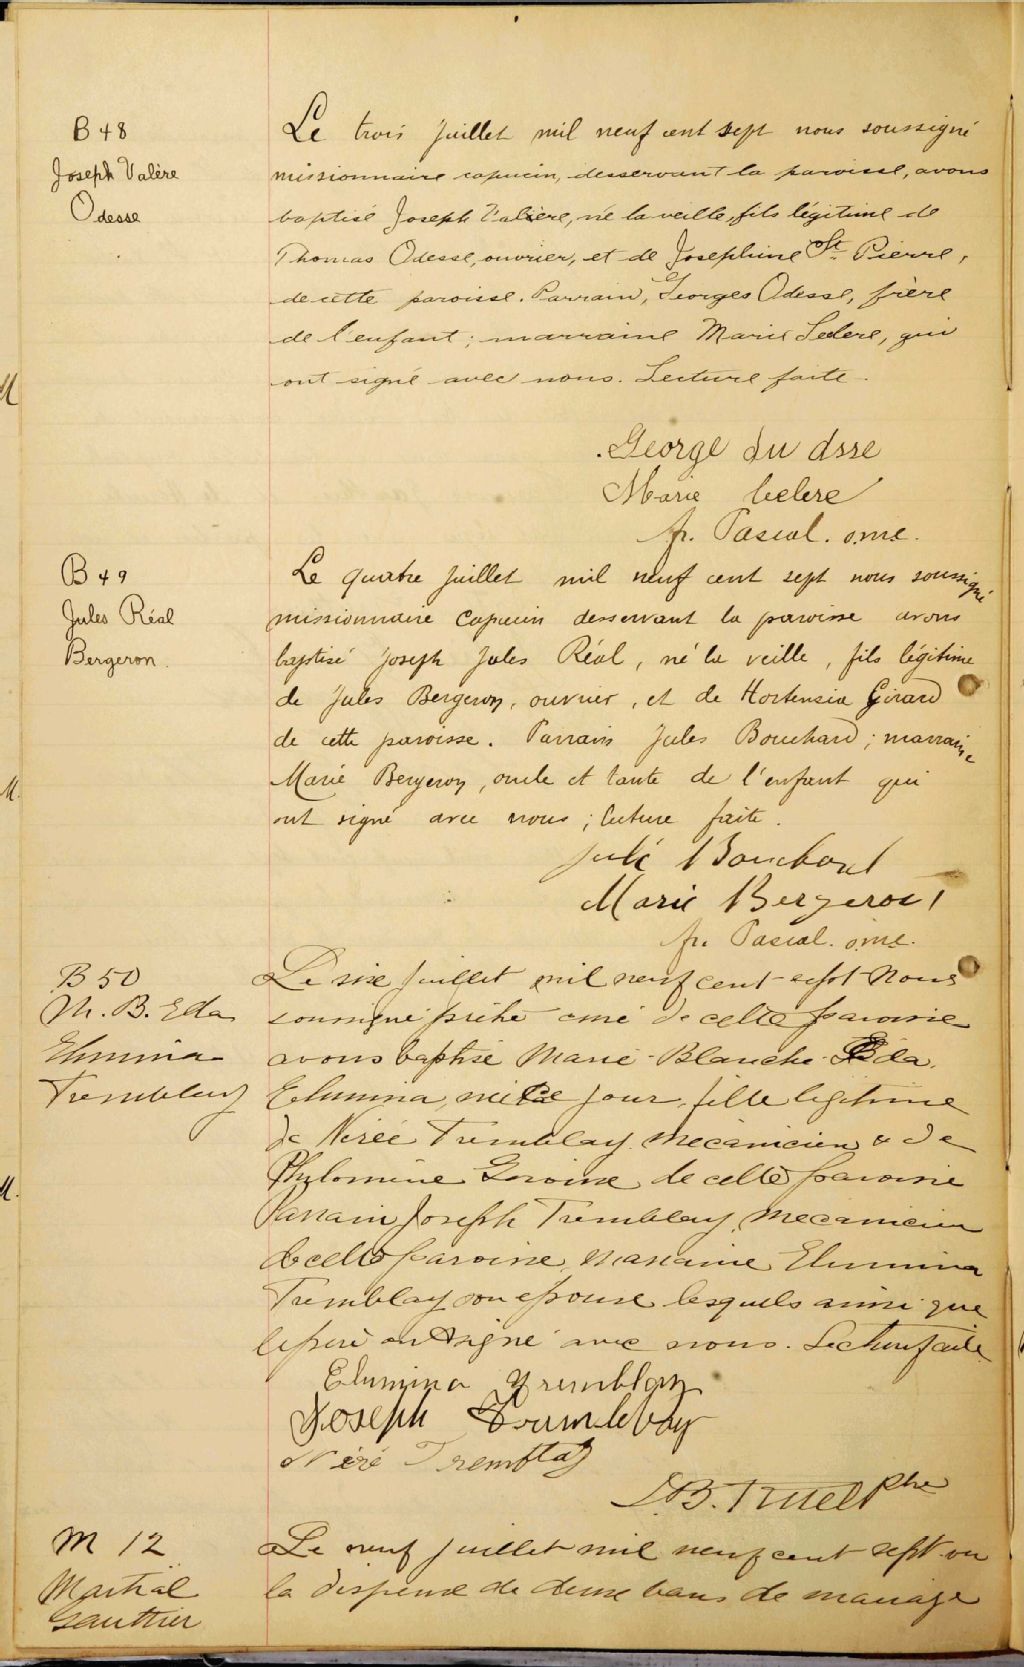 B 48
Joseph Valère
Odesse
Le trois juillet mil neuf cent sept nous soussigné
missionnaire capucin, desservant la paroisse, avons
baptisé Joseph Valière, né la veille, fils légitime de
Thomas Odesse, ouvrier, et de Josephine St. Pierre,
de cette paroisse. Parrain, Georges Odesse, frère
de l'enfant ; marraine Marie Leclerc, qui
ont signé avec nous. Lecture faite.
George du dsse
Marie leclere
fr. Pascal. o.m.c.
B 49
Jules Réal
Bergeron.
Le quatre juillet mil neuf cent sept nous soussigné
missionnaire capucin desservant la paroisse avons
baptisé joseph Jules Réal, né la veille, fils légitime
de Jules Bergeron, ouvrier, et de Hortensia Girard
de cette paroisse. Parrain Jules Bouchard ; marraine
Marie Bergeron, oncle et tante de l'enfant qui
ont signé avec nous ; lecture faite.
Bouchard
Marie Bergeron
fr. Pascal. o.m.c.
B 50
M. B. Eda
Elmina
Tremblay
Le six juillet mil neuf cent sept Nous
soussigné prêtre curé de cette paroisse
avons baptisé Marie-Blanche-Eda.
Elmina, née ce jour, fille légitime
de Nérée Tremblay mécanicien & de
Phylomène de cette paroisse
Parrain Joseph Tremblay, mecanicien
de cette paroisse, Marraine Elmina
Tremblay son epouse lesquels ainsi que
le père ont signé avec nous. Lecture faite
Elmina Tremblay
Joseph Tremblay
Néré Tremblay
Ptre
M 12
Martial
Gauthier
Le neuf juillet mil neuf cent sept vu
la dispense de deux bans de mariage
M
M.
M.